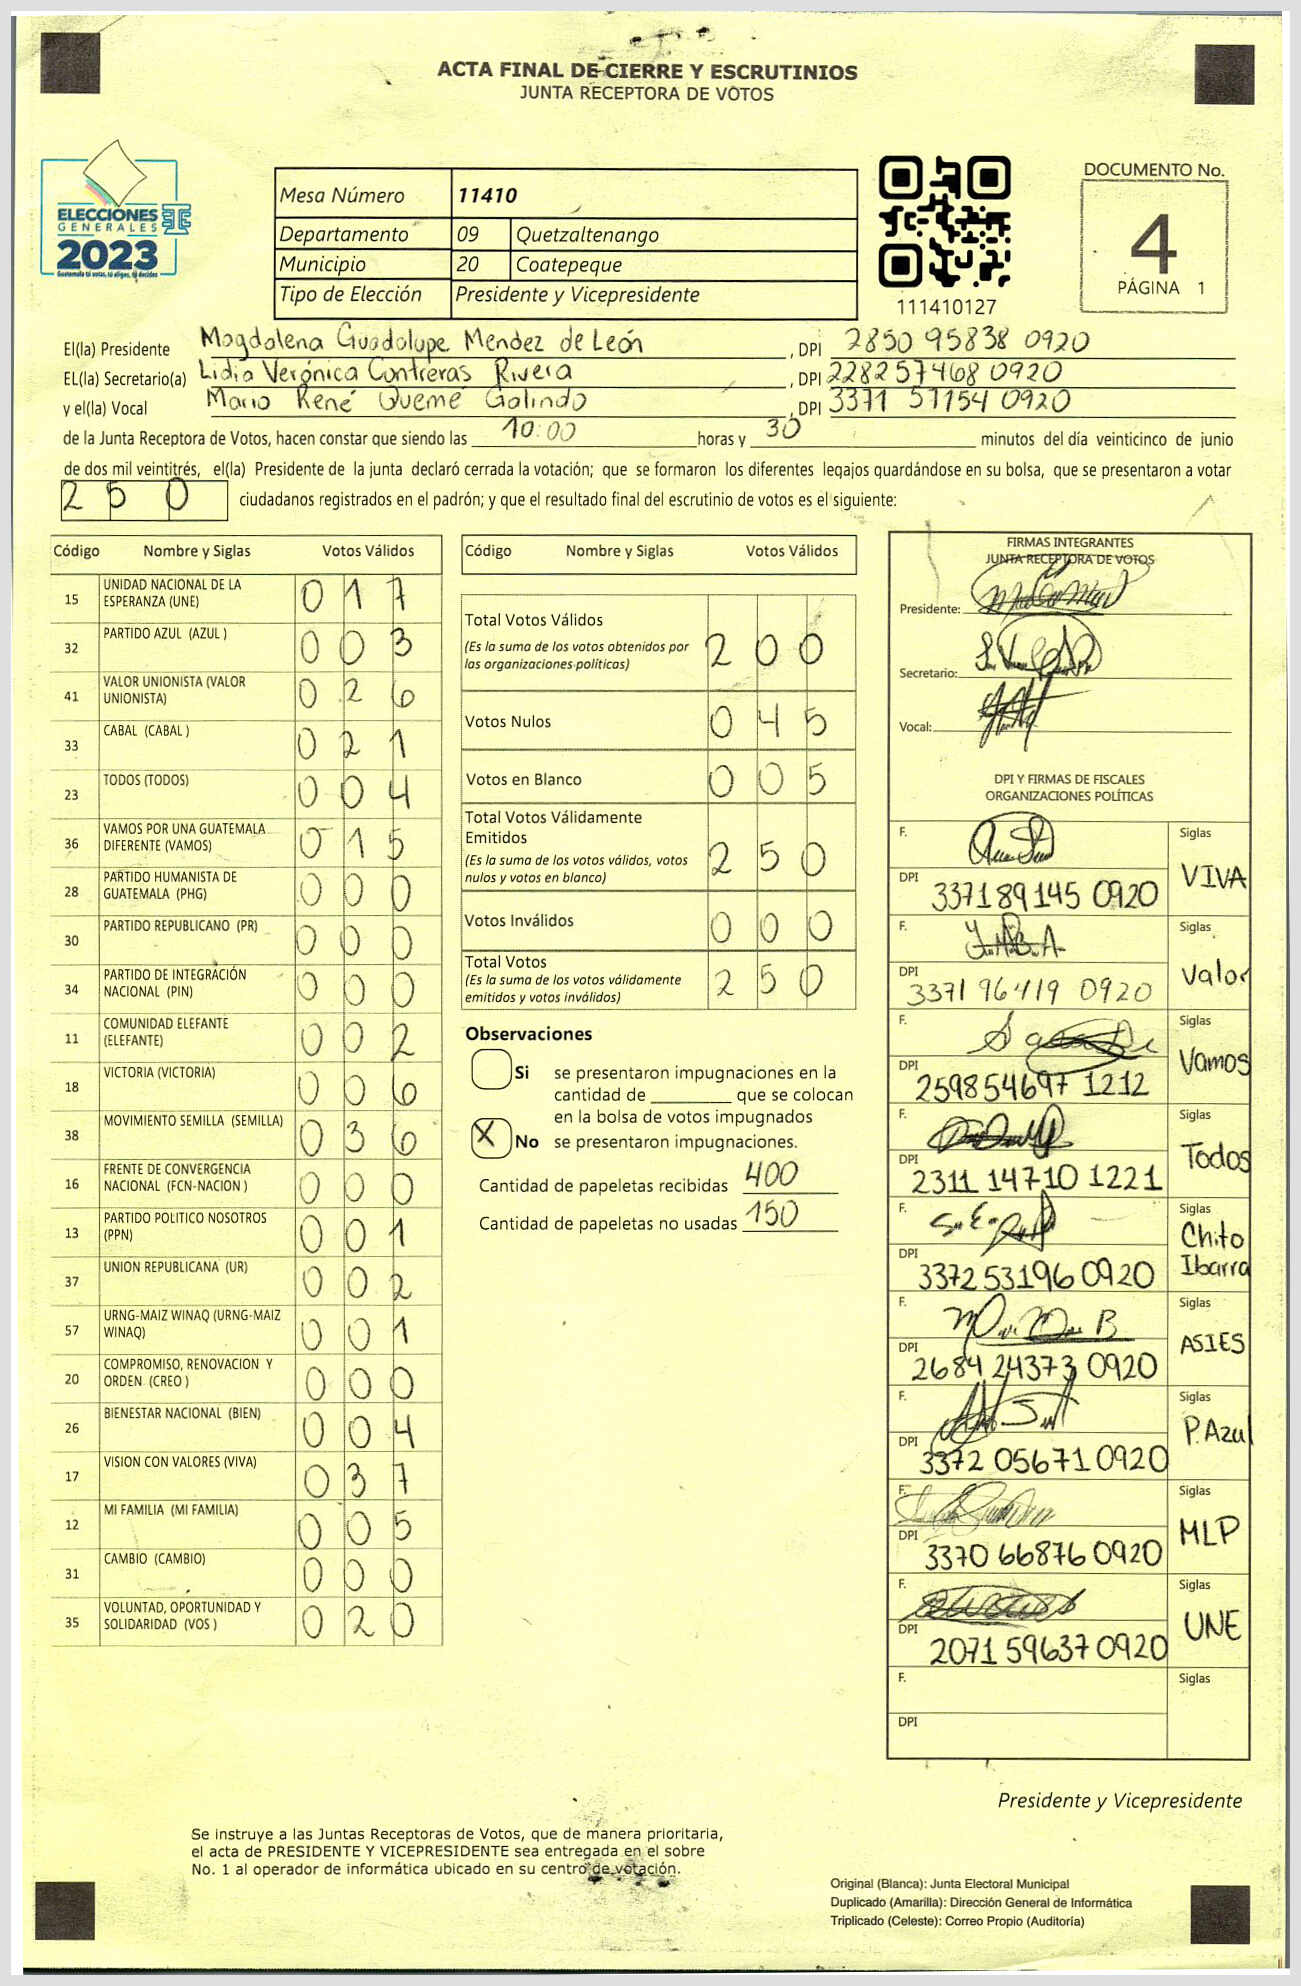 ACTA FINAL DE CIERRE Y ESCRUTINIOS
JUNTA RECEPTORA DE VOTOS
ELECCIONES
GENERALES
2023
Guatemala tú votas, tú eliges, tú decides
Mesa Número 11410
Departamento 09 Quetzaltenango
Municipio 20 Coatepeque
Tipo de Elección Presidente y Vicepresidente
111410127
DOCUMENTO No.
4
PÁGINA 1
El(la) Presidente Magdalena Guadalupe Mendez de León, DPI 2850 95838 0920
EL(la) Secretario(a) Lidia Verónica Contreras Rivera, DPI 2282 57468 0920
y el(la) Vocal Mario René Quemé Galindo, DPI 3371 57154 0920
de la Junta Receptora de Votos, hacen constar que siendo las 10:00 horas y 30 minutos del día veinticinco de junio
de dos mil veintitrés, el(la) Presidente de la junta declaró cerrada la votación; que se formaron los diferentes legajos guardándose en su bolsa, que se presentaron a votar
250 ciudadanos registrados en el padrón; y que el resultado final del escrutinio de votos es el siguiente:
Código Nombre y Siglas Votos Válidos
15 UNIDAD NACIONAL DE LA ESPERANZA (UNE) 017
32 PARTIDO AZUL (AZUL ) 003
41 VALOR UNIONISTA (VALOR UNIONISTA) 026
33 CABAL (CABAL ) 021
23 TODOS (TODOS) 004
36 VAMOS POR UNA GUATEMALA DIFERENTE (VAMOS) 015
28 PARTIDO HUMANISTA DE GUATEMALA (PHG) 000
30 PARTIDO REPUBLICANO (PR) 000
34 PARTIDO DE INTEGRACIÓN NACIONAL (PIN) 000
11 COMUNIDAD ELEFANTE (ELEFANTE) 002
18 VICTORIA (VICTORIA) 006
38 MOVIMIENTO SEMILLA (SEMILLA) 036
16 FRENTE DE CONVERGENCIA NACIONAL (FCN-NACION ) 000
13 PARTIDO POLITICO NOSOTROS (PPN) 001
37 UNION REPUBLICANA (UR) 002
57 URNG-MAIZ WINAQ (URNG-MAIZ WINAQ) 001
20 COMPROMISO, RENOVACION Y ORDEN (CREO ) 000
26 BIENESTAR NACIONAL (BIEN) 004
17 VISION CON VALORES (VIVA) 037
12 MI FAMILIA (MI FAMILIA) 005
31 CAMBIO (CAMBIO) 000
35 VOLUNTAD, OPORTUNIDAD Y SOLIDARIDAD (VOS ) 020
Código Nombre y Siglas Votos Válidos
Total Votos Válidos 200
(Es la suma de los votos obtenidos por
las organizaciones políticas)
Votos Nulos 045
Votos en Blanco 005
Total Votos Válidamente
Emitidos 250
(Es la suma de los votos válidos, votos
nulos y votos en blanco)
Votos Inválidos 000
Total Votos 250
(Es la suma de los votos válidamente
emitidos y votos inválidos)
Observaciones
Si se presentaron impugnaciones en la
cantidad de ________ que se colocan
en la bolsa de votos impugnados
X No se presentaron impugnaciones.
Cantidad de papeletas recibidas 400
Cantidad de papeletas no usadas 150
FIRMAS INTEGRANTES
JUNTA RECEPTORA DE VOTOS
Presidente:
Secretario:
Vocal:
DPI Y FIRMAS DE FISCALES
ORGANIZACIONES POLÍTICAS
F. Siglas
DPI 3371 89145 0920 VIVA
F. Siglas
DPI 3371 96419 0920 Valor
F. Siglas
DPI 2598 54697 1212 Vamos
F. Siglas
DPI 2311 14710 1221 Todos
F. Siglas
DPI 3372 53196 0920 Chito Ibarra
F. Siglas
DPI 2684 24373 0920 ASIES
F. Siglas
DPI 3372 05671 0920 P.Azul
F. Siglas
DPI 3370 66876 0920 MLP
F. Siglas
DPI 2071 59637 0920 UNE
F. Siglas
DPI
Presidente y Vicepresidente
Se instruye a las Juntas Receptoras de Votos, que de manera prioritaria,
el acta de PRESIDENTE Y VICEPRESIDENTE sea entregada en el sobre
No. 1 al operador de informática ubicado en su centro de votación.
Original (Blanca): Junta Electoral Municipal
Duplicado (Amarilla): Dirección General de Informática
Triplicado (Celeste): Correo Propio (Auditoría)